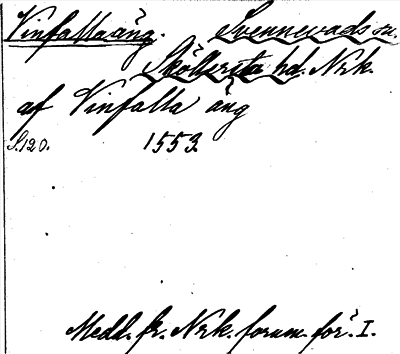 Vinfallaäng. Svennevads sn.
Sköllersta hd. Nrk.
af Vinfalla äng
S. 120. 1553.
Medd. fr. Nrk. fornm. för. I.